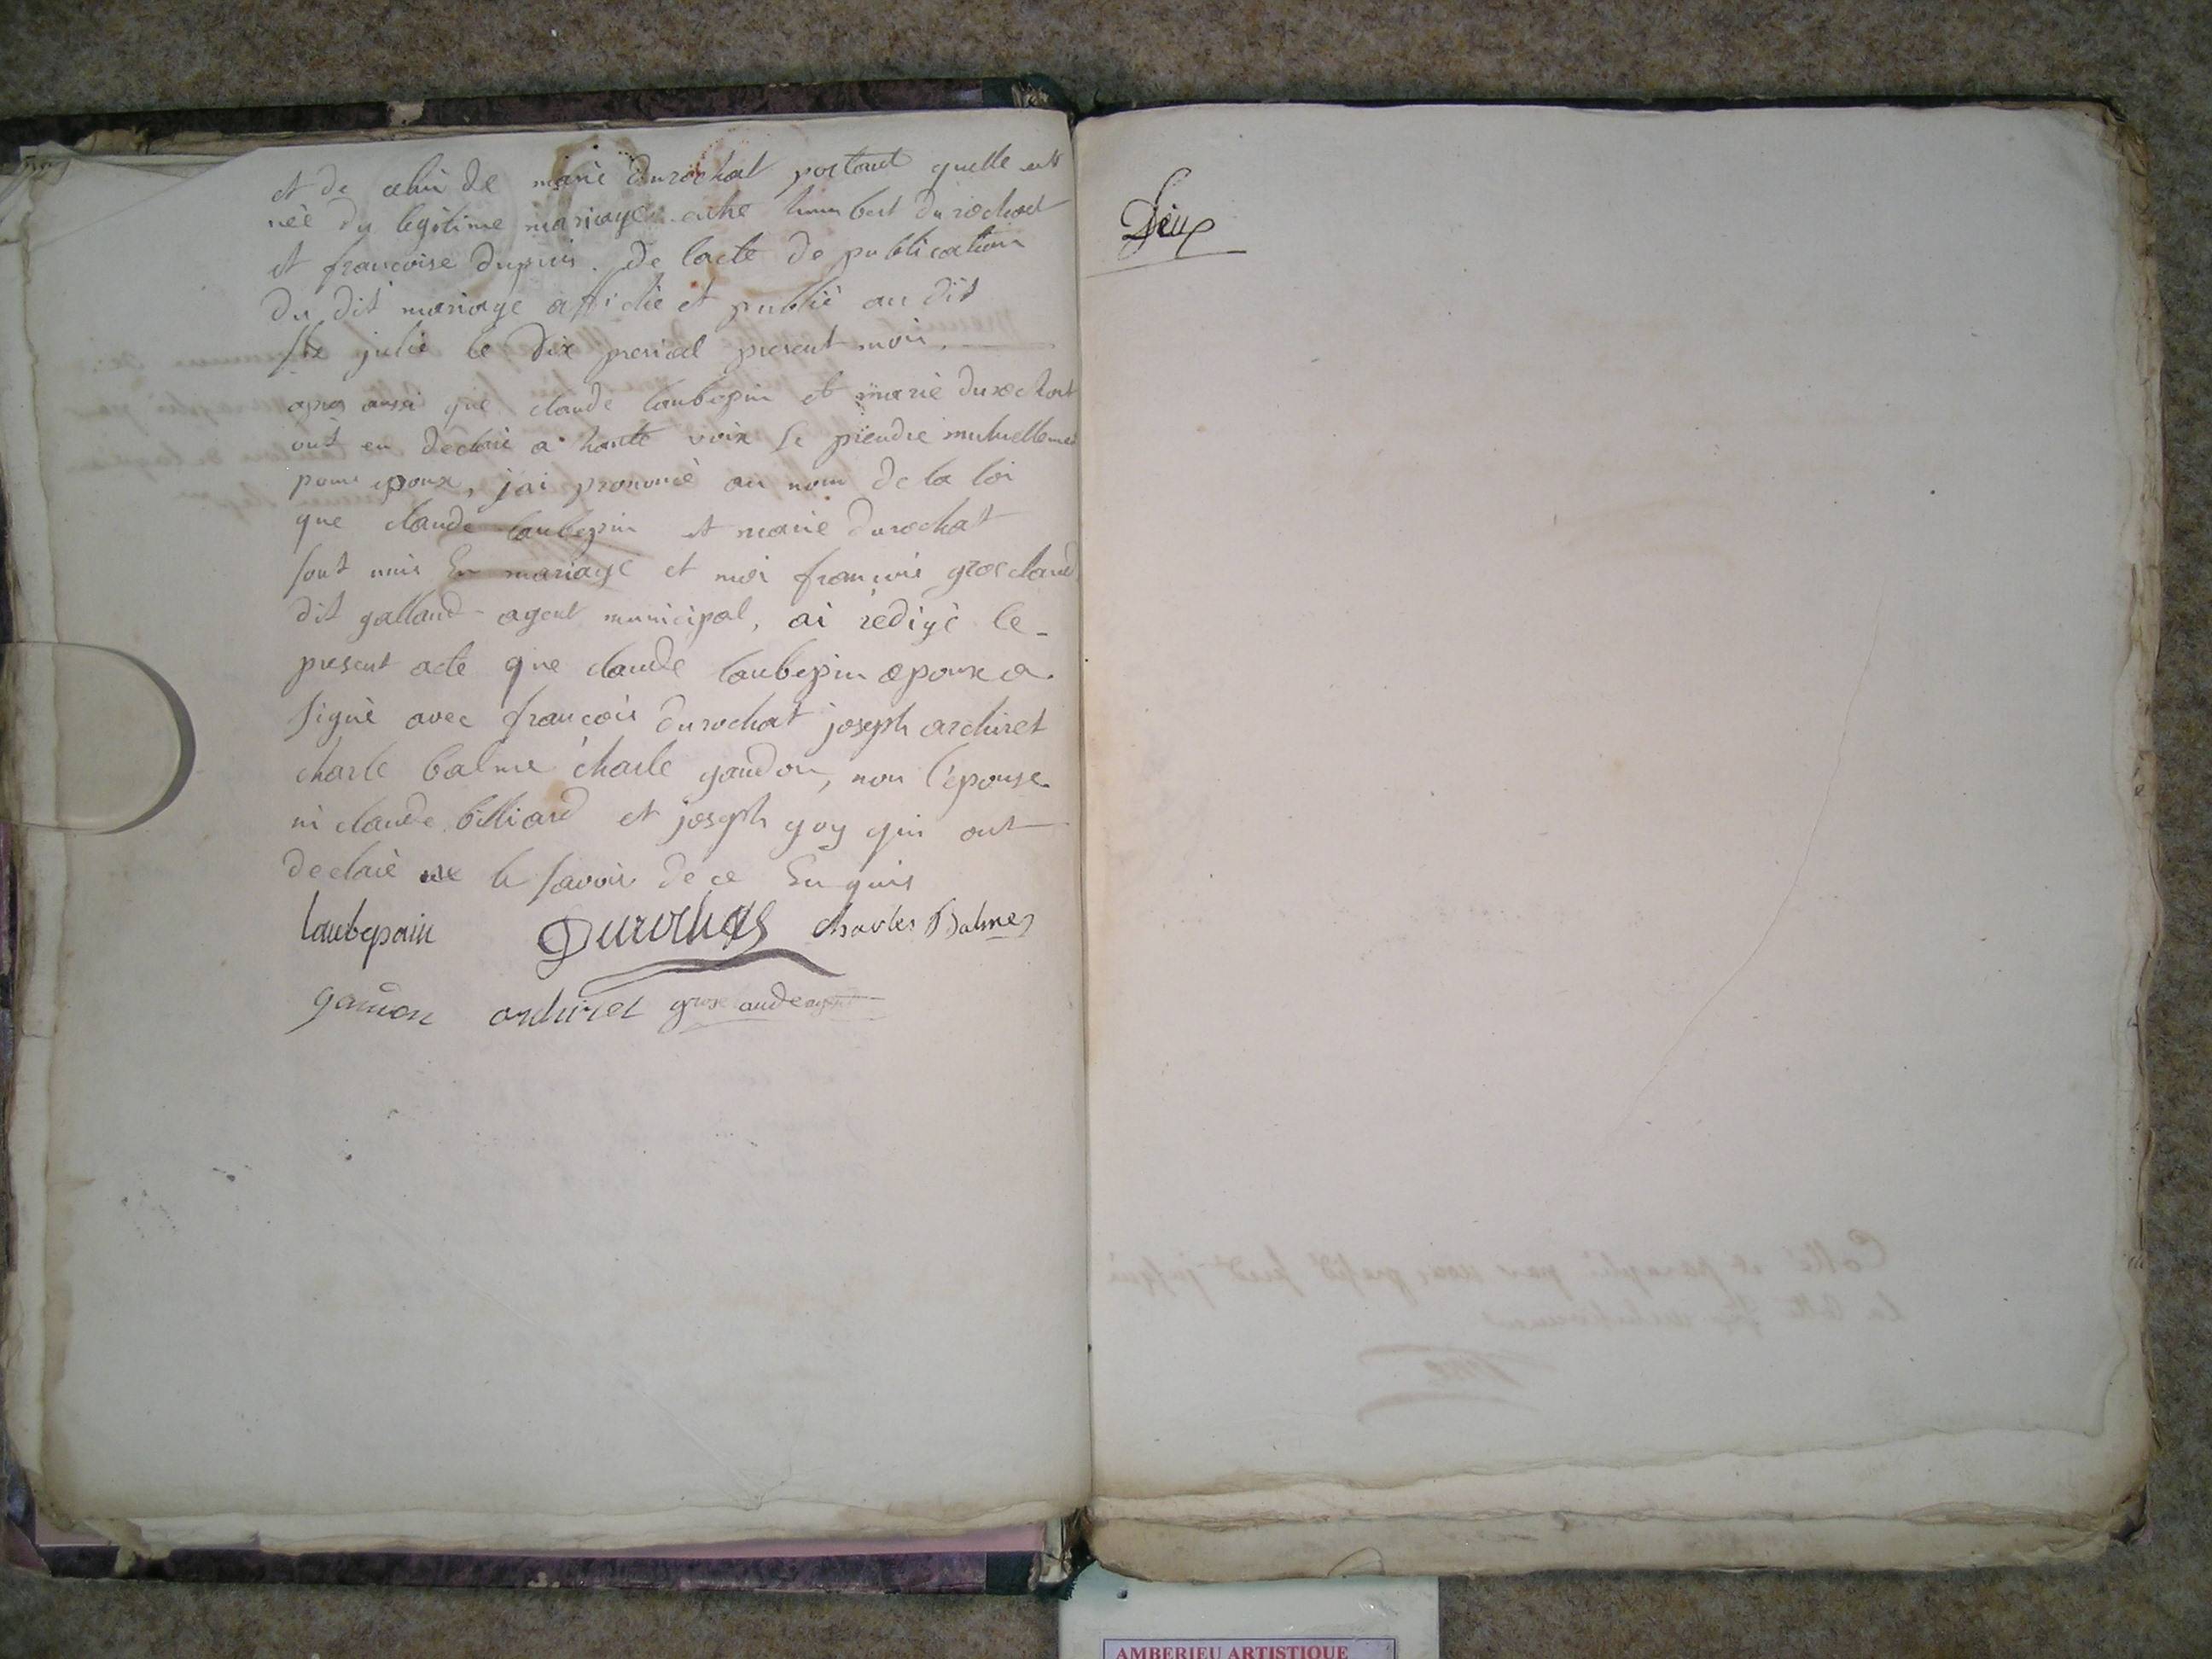 et de celui de marie durochat portant quelle est
née du legitime mariage entre humbert durochat
et francoise dupuis. de lacte de publication
du dit mariage affiché et publié au dit
Ste julie le dix prerial present mois.
apres aussi que claude laubepin et marie durochat
ont eu declaré a haute voix se prendre mutuellement
pour epoux, j'ai prononcé au nom de la loi
que claude laubepin et marie durochat
sont unis En mariage et moi francois grosclaud
dit galland agent municipal, ai rédigé le
present acte que claude laubepin epoux a
signé avec françois durochat joseph archiret
charle balme charle gandon, non l'épouse
ni claude billiard et joseph goy qui ont
declaré ne le savoir de ce Enquis
laubepain Durochat charles Balme
gandon archiret grosclaude agent
Deux
AMBERIEU ARTISTIQUE